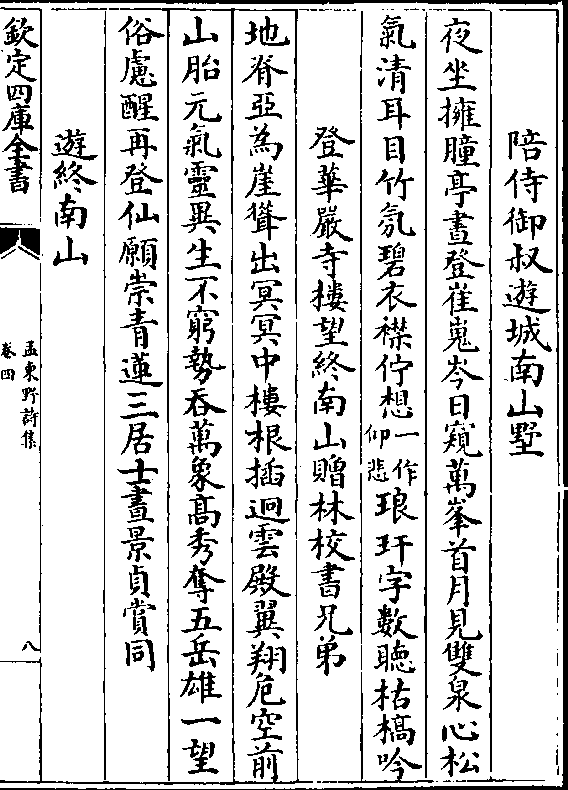 陪侍御叔遊城南山墅
夜坐擁腫亭晝登崔嵬岑日窺萬峯首月見雙泉心松
氣清耳目竹氛碧衣襟佇想一作仰悲琅玕字數聽枯槁吟
登華嚴寺樓望終南山贈林校書兄弟
地脊亞為崖聳出冥冥中樓根插迥雲殿翼翔危空前
山胎元氣靈異生不窮勢吞萬象高秀奪五岳雄一望
俗慮醒再登仙願崇青蓮三居士晝景貞賞同
遊終南山
欽定四庫全書
孟東野詩集
卷四
八